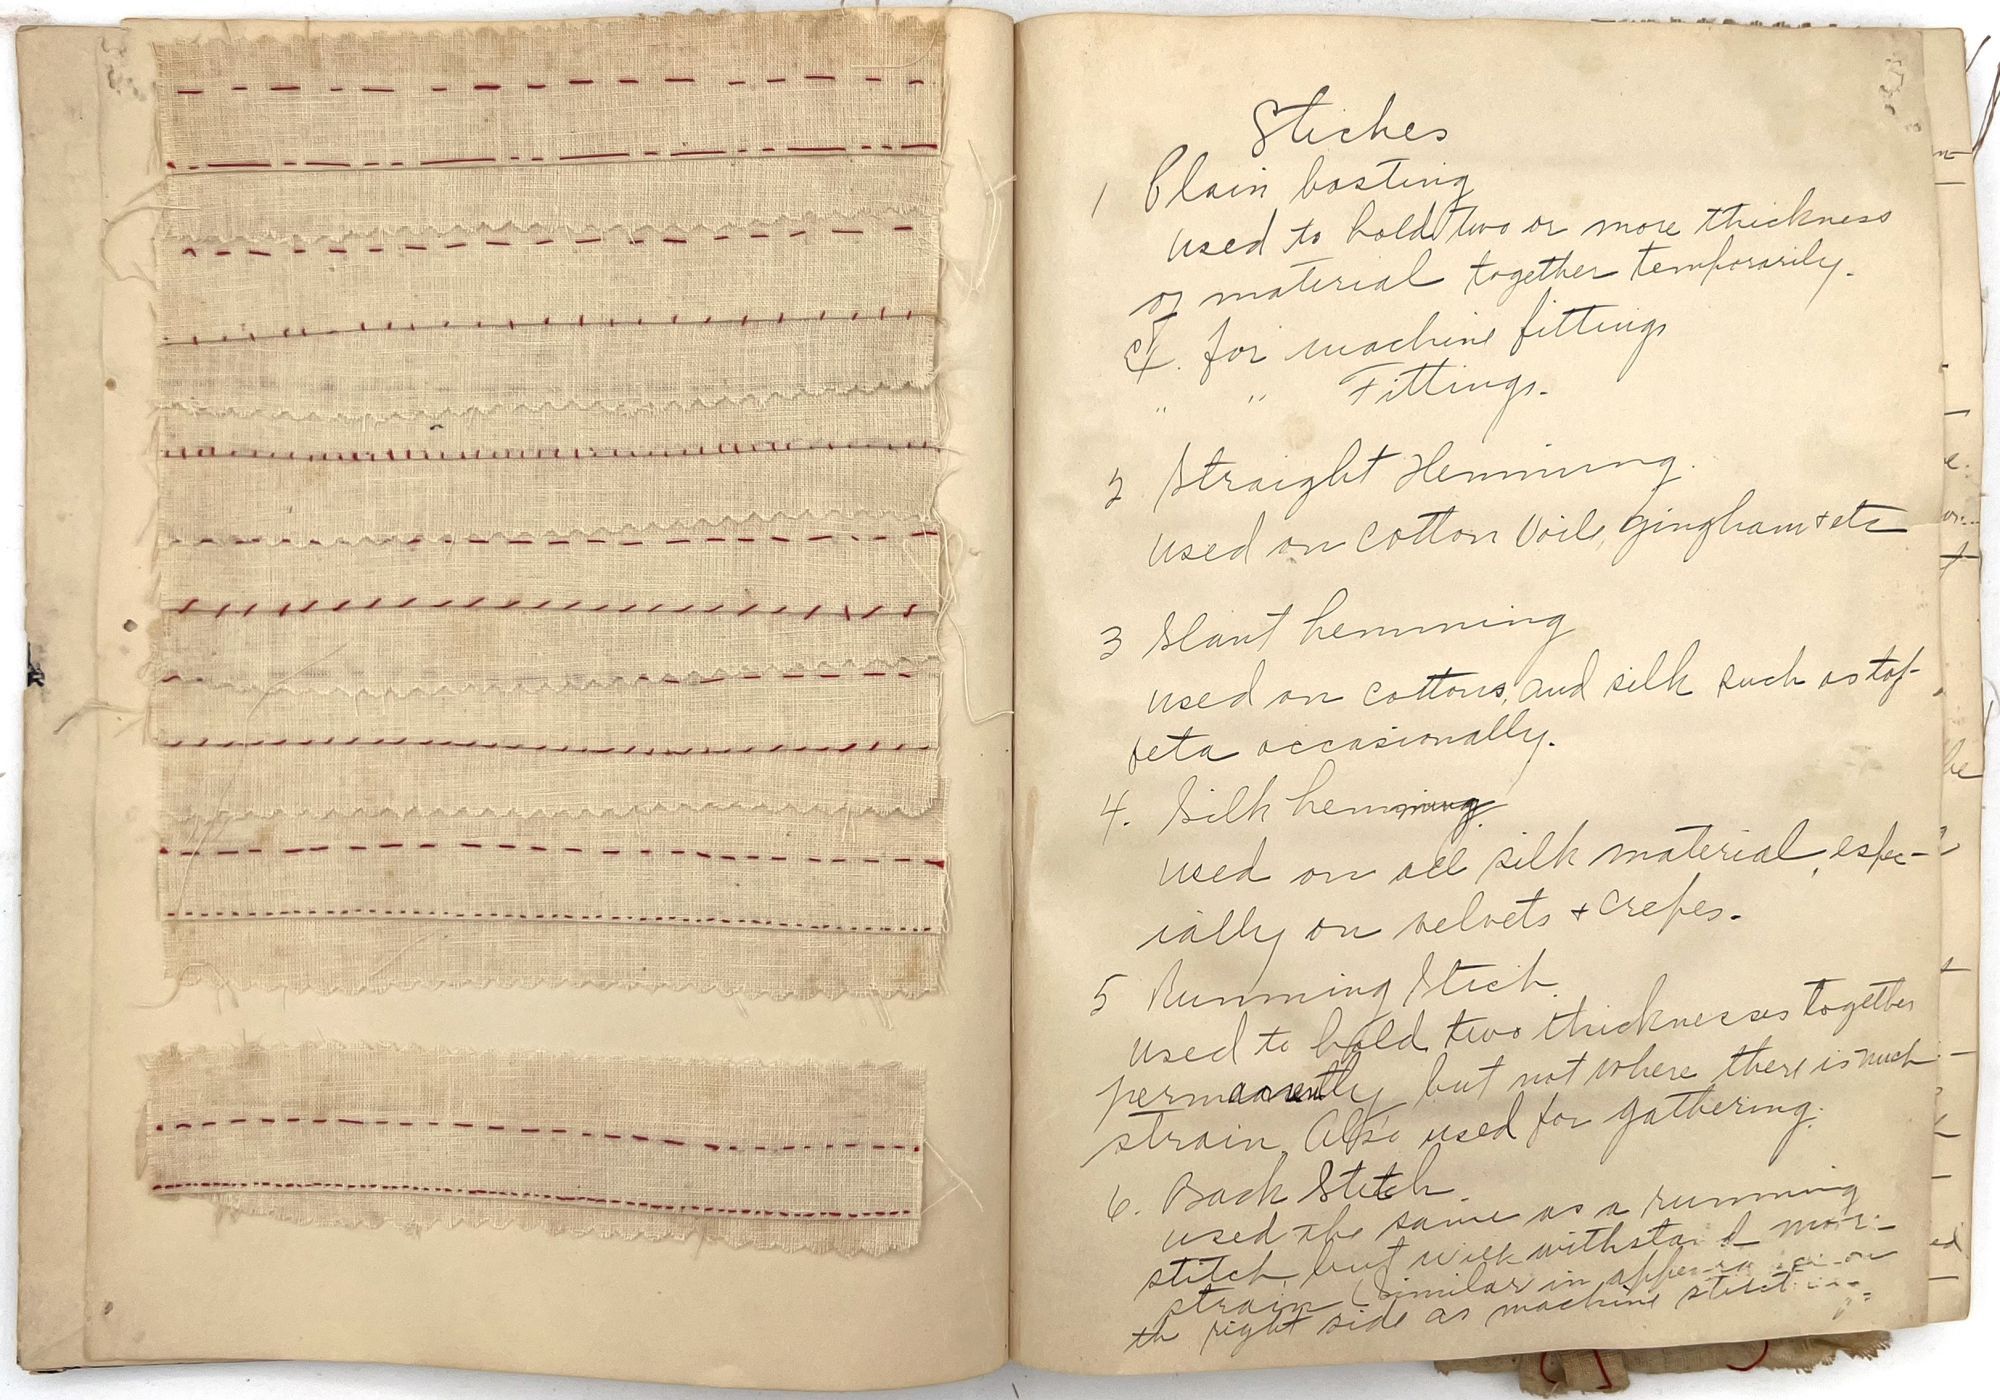 Stiches
1 Plain basting
used to hold two or more thickness
of material together temporarily.
for machine fittings
" " Fittings.
2 Straight Hemming.
used on cotton Voile, gingham + etc
3 Slant hemming
used on cottons, and silk such as taf-
feta occasionally.
4. Silk hemming.
used on all silk material, espec-
ially on velvets + crepes.
5 Running Stich.
used to hold two thicknesses together
permanently but not where there is much
strain. Also used for gathering.
6. Back Stitch.
used the same as a running
stitch, but will withstand more
strain (Similar in appearance on
the right side as machine stitch